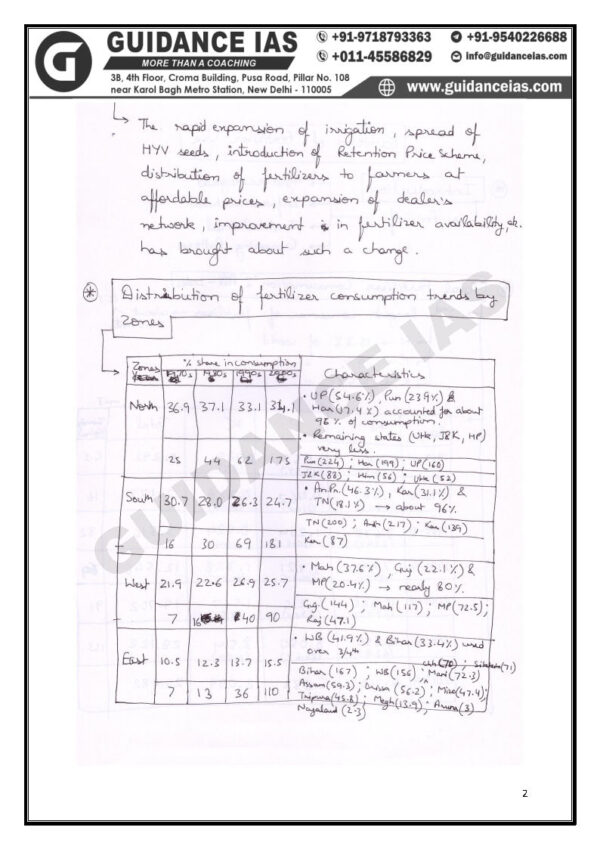 GUIDANCE IAS
MORE THAN A COACHING
3B, 4th Floor, Croma Building, Pusa Road, Pillar No. 108
near Karol Bagh Metro Station, New Delhi - 110005
+91-9718793363
+91-9540226688
+011-45586829
info@guidanceias.com
www.guidanceias.com
The rapid expansion of irrigation, spread of
HYV seeds, introduction of Retention Price Scheme,
distribution of fertilizers to farmers at
affordable prices, expansion of dealer's
network, improvement in fertilizer availability, etc.
has brought about such a change.
Distribution of fertilizer consumption trends by
Zones
Zones % share in consumption Characteristics
1970s 1980s 1990s 2000s
North 36.9 37.1 33.1 34.1
• UP (54.6%), Pun (23.9%) &
Har (17.4%) accounted for about
96% of consumption.
• Remaining states (Utk, J&K, HP)
very less.
25 44 62 175
Pun (224) ; Har (199) ; UP (160)
J&K (88) ; Him (56) ; Utk (52)
South 30.7 28.0 26.3 24.7
• An.Pr. (46.3%), Kar (31.1%) &
TN (18.1%) → about 96%.
16 30 69 181
TN (200) ; Andh (217) ; Kar (139)
Ker (87)
West 21.9 22.6 26.9 25.7
• Mah (37.6%), Guj (22.1%) &
MP (20.4%) → nearly 80%.
7 16 40 90
Guj (144) ; Mah (117) ; MP (72.5) ;
Raj (47.1)
East 10.5 12.3 13.7 15.5
• WB (41.9%) & Bihar (33.4%) used
over 3/4th
7 13 36 110
(70) ; Sikkim (71)
Bihar (167) ; WB (156) ; Mani (72.3)
Assam (59.3) ; Orissa (56.2) ; Mizo (47.4) ;
Tripura (45.8) ; Megh (13.9) ; Aruna (3)
Nagaland (2.3)
GUIDANCE IAS
2